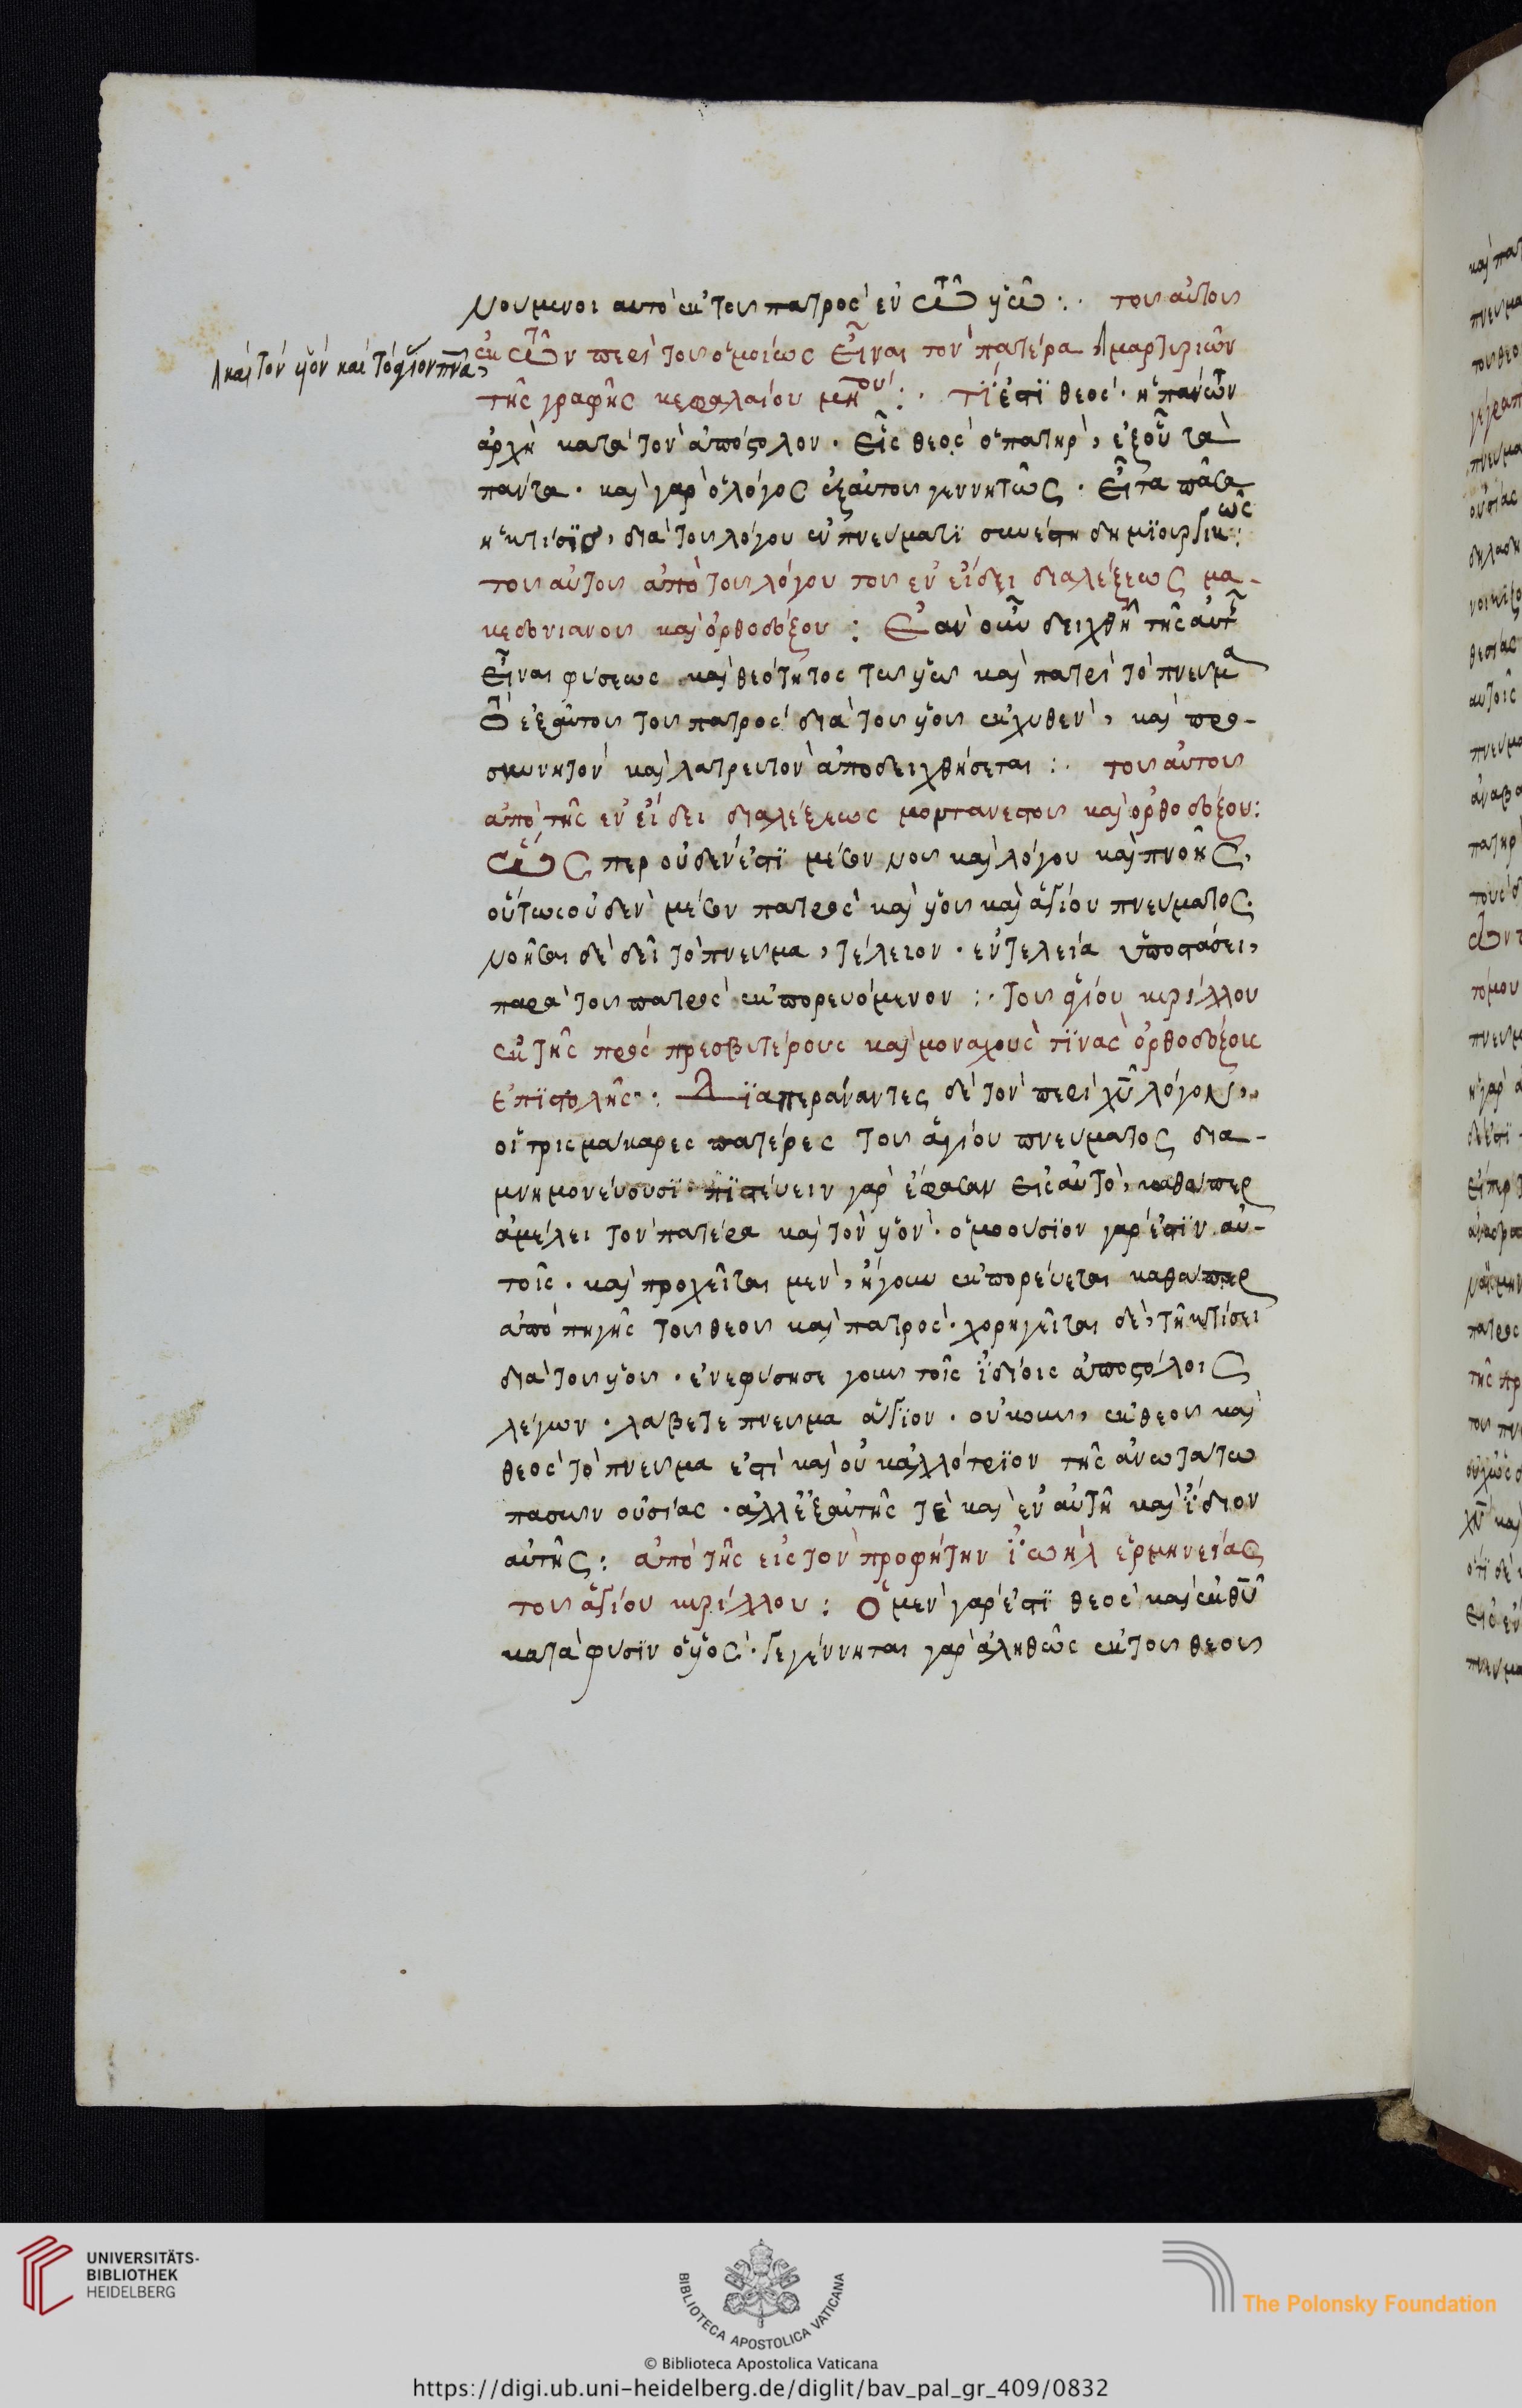 νουμενοι αυτὸ ἐκ τοῦ πατρὸς ἐν τῶ υἱῶ :· τοῦ αὐτοῦ
ἐκ τῶν περὶ τοῦ ὁμοίως εἶναι τὸν πατέρα μαρτυριῶν
καὶ τὸν υἱὸν καὶ τὸ ἅγιον πνα,
τῆς γραφῆς κεφαλαίου μηου :· τί ἐστϊ θεὸς· ἡ πάντων
ἀρχὴ κατὰ τὸν ἀπόστολον · εἷς θεὸς ὁ πατὴρ, ἐξ οὗ τὰ
πάντα · καὶ γὰρ ὁ λόγος ἐξ αὐτοῦ γεννητῶς · εἶτα πᾶσα
ἡ κτίσϊς, διὰ τοῦ λόγου ἐν πνεύματϊ συνέστη δημϊουργικῶς :
τοῦ αὐτοῦ ἀπὸ τοῦ λόγου τοῦ ἐν εἴδει διαλέξεως μα-
κεδονιανοῦ καὶ ὀρθοδόξου : Ἐὰν οὖν δειχθῆ τῆς αὐτῆς
εἶναι φύσεως καὶ θεότητος τῶ υἱῶ καὶ πατρὶ τὸ πνεῦμα
ὃ ἐξ αὐτοῦ τοῦ πατρὸς διὰ τοῦ υἱοῦ ἐκχυθὲν, καὶ προ-
σκυνητὸν καὶ λατρευτὸν ἀποδειχθήσεται :· τοῦ αὐτοῦ
ἀπὸ τῆς ἐν εἴδει διαλέξεως μοντανιστοῦ καὶ ὀρθοδόξου :
Ὥς περ οὐδὲν ἐστϊ μέσον νοῦ καὶ λόγου καὶ πνοῆς,
οὕτως οὐδὲν μέσον πατρὸς καὶ υἱοῦ καὶ ἁγίου πνεύματος.
νοῆσαι δὲ δεῖ τὸ πνεῦμα, τέλειον · ἐν τελεία ὑποστάσει,
παρὰ τοῦ πατρὸς ἐκπορευόμενον :· τοῦ ἁγίου κυρίλλου
ἐκ τῆς πρὸς πρεσβυτέρους καὶ μοναχοὺς τϊνὰς ὀρθοδόξοις
ἐπϊστολῆς · : Δϊαπεράναντες δὲ τὸν περὶ χυ λόγον,
οἱ τρισμάκαρες πατέρες τοῦ ἁγίου πνεύματος δια-
μνημονεύουσϊ· πϊστεύειν γὰρ ἔφασαν εἰς αὐτὸ, καθάπερ
ἀμέλει τὸν πατέρα καὶ τὸν υἱὸν · ὁμοούσϊον γάρ ἐστϊν αὐ-
τοῖς · καὶ προχεῖται μὲν, ἤγουν ἐκπορεύεται καθάπερ
ἀπὸ πηγῆς τοῦ θεοῦ καὶ πατρὸς · χορηγεῖται δὲ, τῆ κτίσει
διὰ τοῦ υἱοῦ · ἐνεφύσησε γοῦν τοῖς ἰδίοις ἀποστόλοις
λέγων · λάβετε πνεῦμα ἅγϊον · οὐκοῦν, ἐκ θεοῦ καὶ
θεὸς τὸ πνεῦμα ἐστὶ καὶ οὐκ ἀλλότρϊον τῆς ἀνωτάτω
πασῶν οὐσίας · ἀλλ' ἐξ αὐτῆς τὲ καὶ ἐν αὐτῆ καὶ ἴδιον
αὐτῆς : ἀπὸ τῆς εἰς τὸν προφήτην ἰωὴλ ἑρμηνείας
τοῦ ἁγίου κυρίλλου : Ὁ μὲν γάρ ἐστϊ θεὸς καὶ ἐκ θυ
κατὰ φύσϊν ὁ υἱὸς · γεγέννηται γὰρ ἀληθῶς ἐκ τοῦ θεοῦ
UNIVERSITÄTS-
BIBLIOTHEK
HEIDELBERG
BIBLIOTECA APOSTOLICA VATICANA
The Polonsky Foundation
© Biblioteca Apostolica Vaticana
https://digi.ub.uni-heidelberg.de/diglit/bav_pal_gr_409/0832